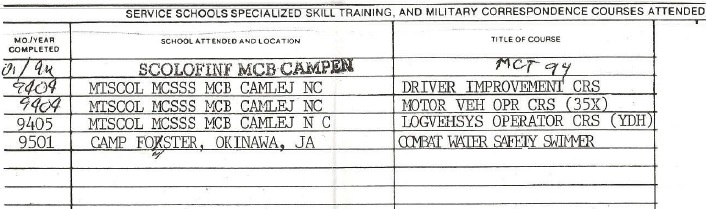 SERVICE SCHOOLS SPECIALIZED SKILL TRAINING, AND MILITARY CORRESPONDENCE COURSES ATTENDED
MO./YEAR COMPLETED SCHOOL ATTENDED AND LOCATION TITLE OF COURSE
SCOLOFINF MCB CAMPEN MCT 94
9404 MTSCOL MCSSS MCB CAMLEJ NC DRIVER IMPROVEMENT CRS
9404 MTSCOL MCSSS MCB CAMLEJ NC MOTOR VEH OPR CRS (35X)
9405 MTSCOL MCSSS MCB CAMLEJ N C LOGVEHSYS OPERATOR CRS (YDH)
9501 CAMP FOSTER, OKINAWA, JA COMBAT WATER SAFETY SWIMMER